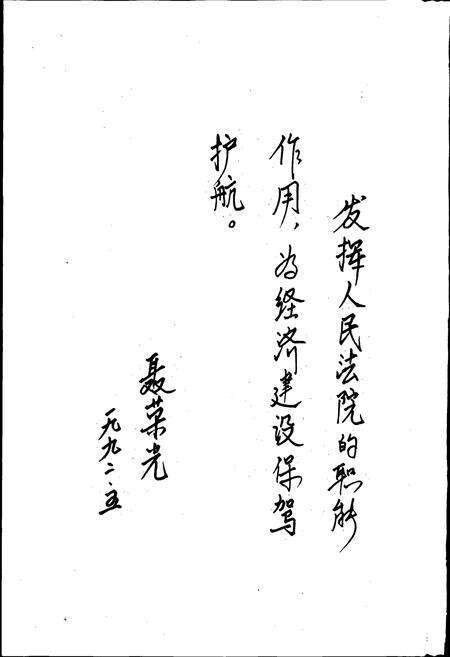 发挥人民法院的职能
作用，为经济建设保驾
护航。
聂荣光
一九九二·五